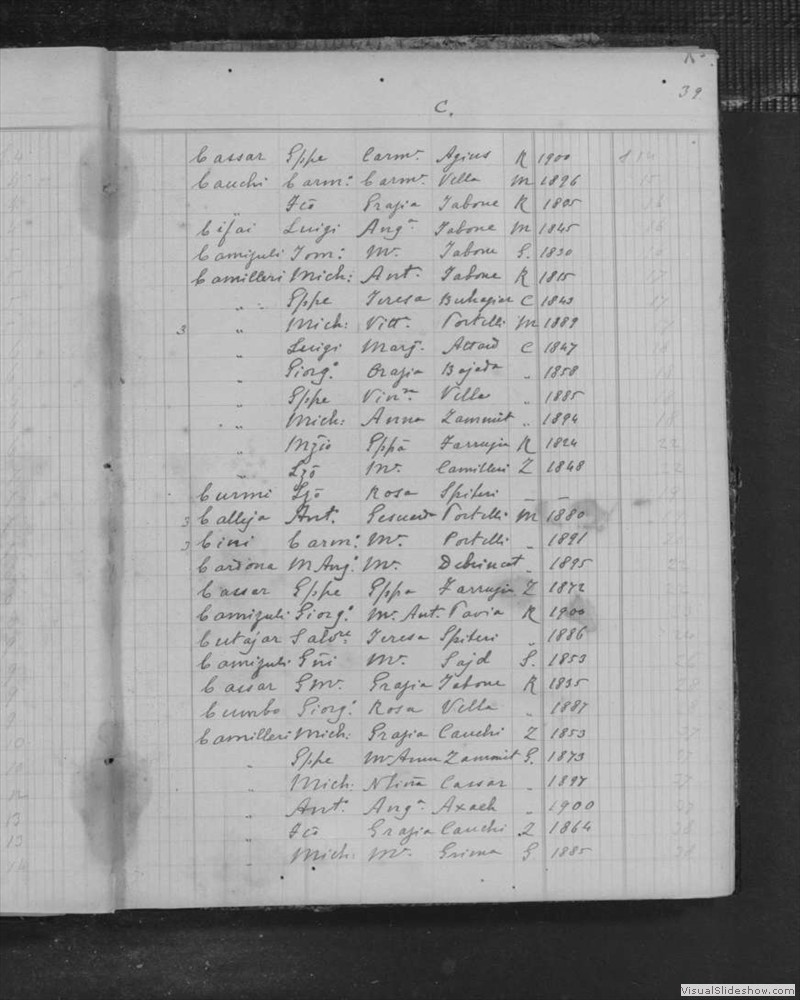 39
C.
Cassar Gppe Carmᵃ Agius R 1900
Cauchi Carmᵒ Carmᵃ Vella M 1896
Fcō Grazia Tabone R 1805
Cifai Luigi Angᵃ Tabone M 1845
Camizuli Tomᵒ Mᵃ Tabone G. 1830
Camilleri Mich: Antᵃ Tabone R 1815
„ Gppe Teresa Buhagiar C 1843
3 „ Mich: Vittᵃ Portelli M 1889
„ Luigi Margᵃ Attard C 1847
„ Giorgᵒ Grazia Bajada „ 1858
„ Gppe Vinᶻᵃ Vella „ 1885
„ Mich: Anna Zammit „ 1894
„ Gppā Farrugia R 1824
„ Lzō Mᵃ Camilleri Z 1848
Curmi Lzō Rosa Spiteri _ _
3 Calleja Antᵒ Portelli M 1880
3 Cini Carmᵒ Mᵃ Portelli „ 1891
Cardona M Angᵒ Mᵃ Debrincat „ 1895
Cassar Gppe Gppa Farrugia Z 1872
Camizuli Giorgᵒ Mᵃ Antᵃ Pavia R 1900
Cutajar Salvʳᵉ Teresa Spiteri „ 1886
Camizuli Gñi Mᵃ Sajd G. 1853
Cassar G Mᵃ Grazia Tabone R 1835
Cumbo Giorgᵒ Rosa Vella „ 1887
Camilleri Mich: Grazia Cauchi Z 1853
„ Gppe Mᵃ Anna Zammit G. 1873
„ Mich: Cassar „ 1897
„ Antᵒ Angᵃ Axach „ 1900
„ Fcō Grazia Cauchi Z 1864
„ Mich: Mᵃ Grima G 1885
VisualSlideshow.com